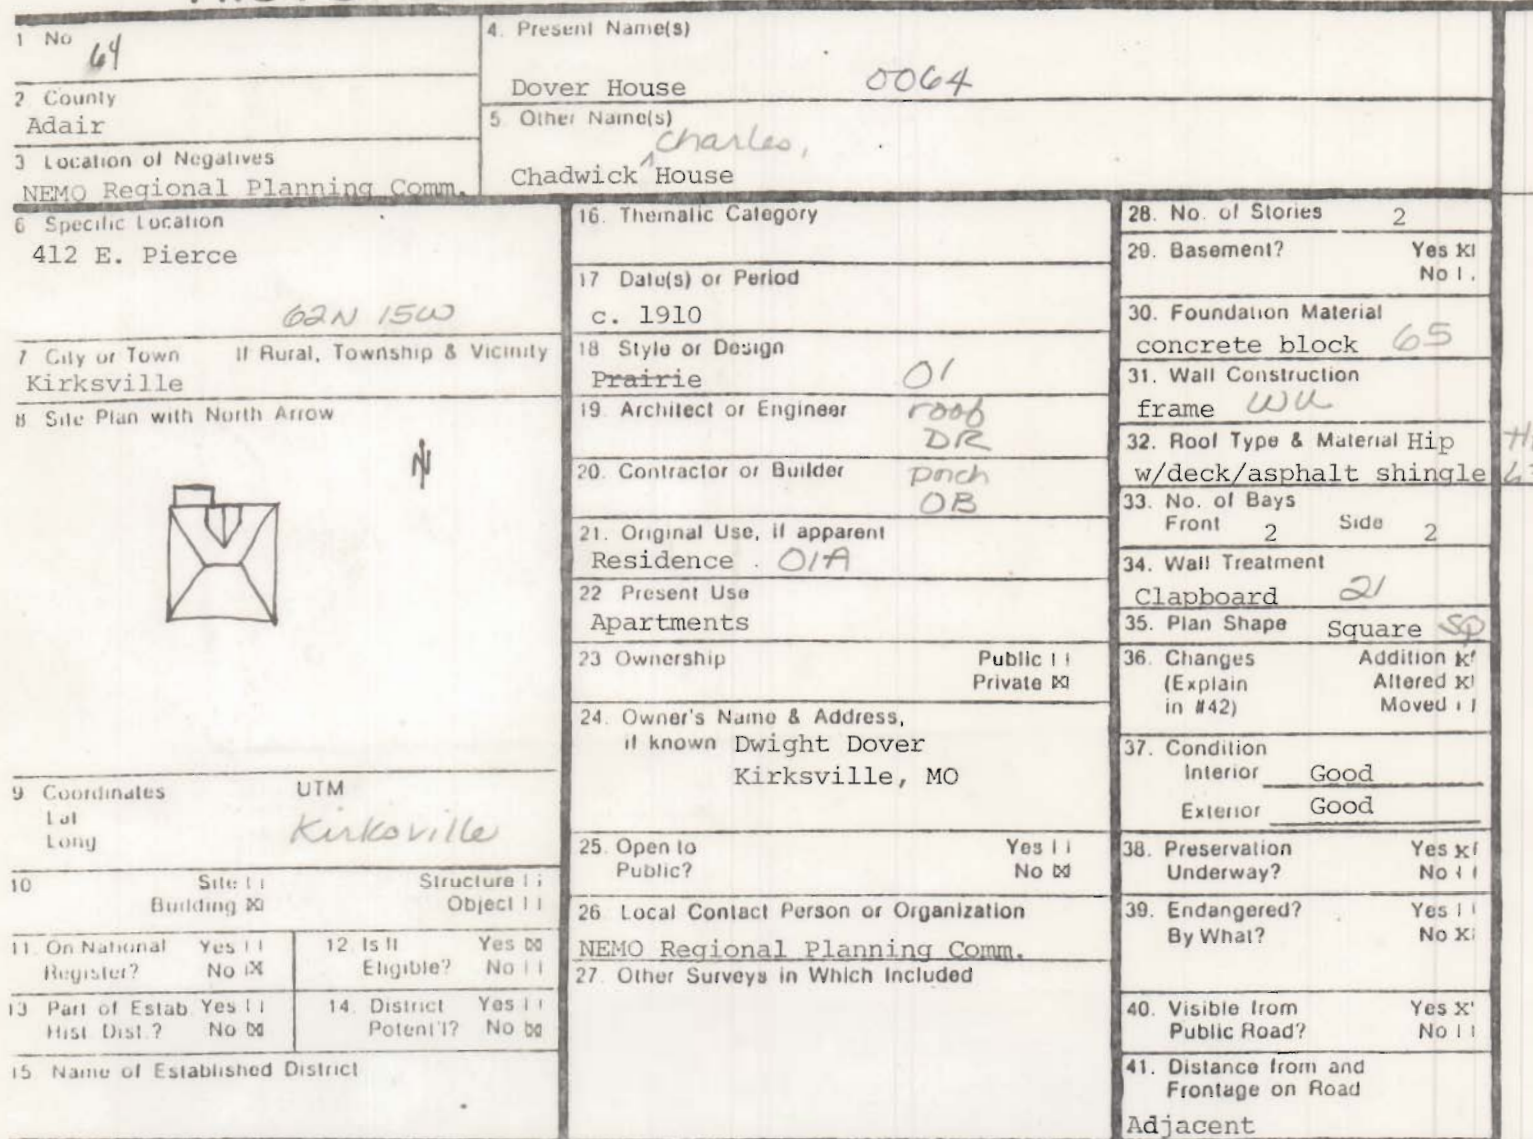 1 No 64
2 County
Adair
3 Location of Negatives
NEMO Regional Planning Comm.
4. Present Name(s)
Dover House 0064
5 Other Name(s)
Charles,
Chadwick ^ House
6 Specific Location
412 E. Pierce
62N 15W
7 City or Town If Rural, Township & Vicinity
Kirksville
8 Site Plan with North Arrow
N
9 Coordinates UTM
Lat
Long
Kirksville
10 Site [ ] Structure [ ]
Building [X] Object [ ]
11. On National Register? Yes [ ] No [X]
12. Is It Eligible? Yes [X] No [ ]
13 Part of Estab. Hist. Dist.? Yes [ ] No [X]
14. District Potent'l? Yes [ ] No [X]
15 Name of Established District
16. Thematic Category
17 Date(s) or Period
c. 1910
18 Style or Design
Prairie 01
19. Architect or Engineer roof
DR
20. Contractor or Builder porch
OB
21. Original Use, if apparent
Residence . 01A
22 Present Use
Apartments
23 Ownership Public [ ]
Private [X]
24. Owner's Name & Address,
if known Dwight Dover
Kirksville, MO
25. Open to Public? Yes [ ]
No [X]
26 Local Contact Person or Organization
NEMO Regional Planning Comm.
27. Other Surveys in Which Included
28. No. of Stories 2
29. Basement? Yes [X]
No [ ]
30. Foundation Material
concrete block 65
31. Wall Construction
frame WU
32. Roof Type & Material Hip
w/deck/asphalt shingle 63
33. No. of Bays
Front 2 Side 2
34. Wall Treatment
Clapboard 21
35. Plan Shape Square SQ
36. Changes Addition [X]
(Explain Altered [X]
in #42) Moved [ ]
37. Condition
Interior Good
Exterior Good
38. Preservation Yes [X]
Underway? No [ ]
39. Endangered? Yes [ ]
By What? No [X]
40. Visible from Yes [X]
Public Road? No [ ]
41. Distance from and
Frontage on Road
Adjacent